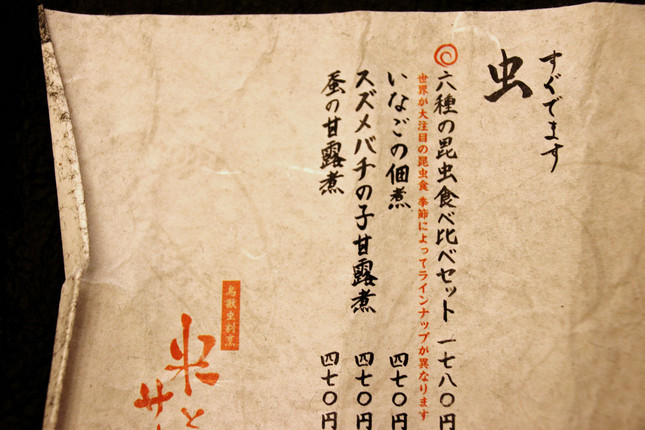 すぐでます
虫
六種の昆虫食べ比べセット 一七八〇円
世界が大注目の昆虫食 季節によってラインナップが異なります
いなごの佃煮 四七〇円
スズメバチの子甘露煮 四七〇円
蚕の甘露煮 四七〇円
鳥獣虫割烹
米と
サ